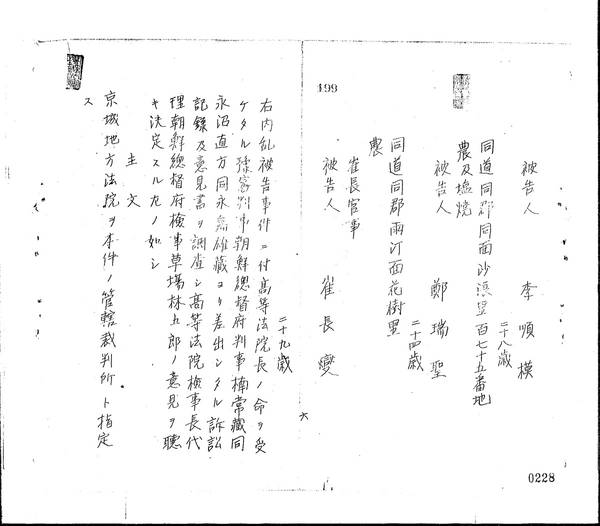 被告人 李順模
二十八歳
同道同郡同面沙浪里百七十五番地
農及塩焼
被告人 鄭瑞聖
二十四歳
同道同郡雨汀面花樹里
農
崔長官事
被告人 崔長燮
二十九歳
六
499
右内乱被告事件ニ付高等法院長ノ命ヲ受
ケタル予審判事朝鮮総督府判事楠常蔵同
永沼直方同永島雄蔵ヨリ差出シタル訴訟
記録及意見書ヲ調査シ高等法院検事長代
理朝鮮総督府検事草場林五郎ノ意見ヲ聴
キ決定スル左ノ如シ
主文
京城地方法院ヲ本件ノ管轄裁判所ト指定
ス
0228